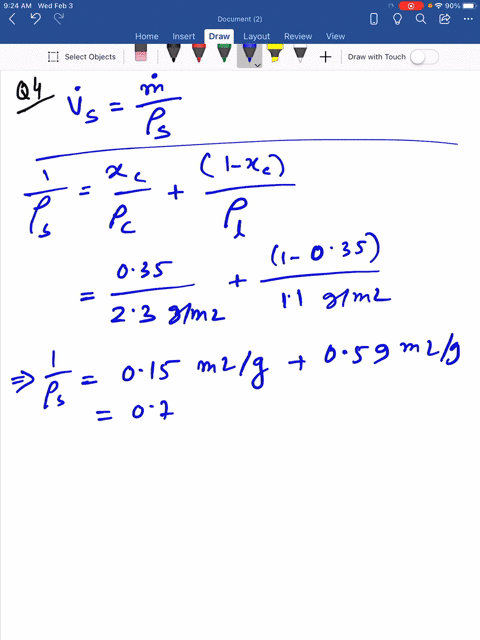 9:24 AM Wed Feb 3
90%
Document (2)
Home Insert Draw Layout Review View
Select Objects
Draw with Touch
Q4 V̇s = ṁ/ρs
1/ρs = xc/ρc + (1-xc)/ρl
= 0.35/2.3 g/m2 + (1-0.35)/1.1 g/m2
⇒ 1/ρs = 0.15 m2/g + 0.59 m2/g
= 0.7